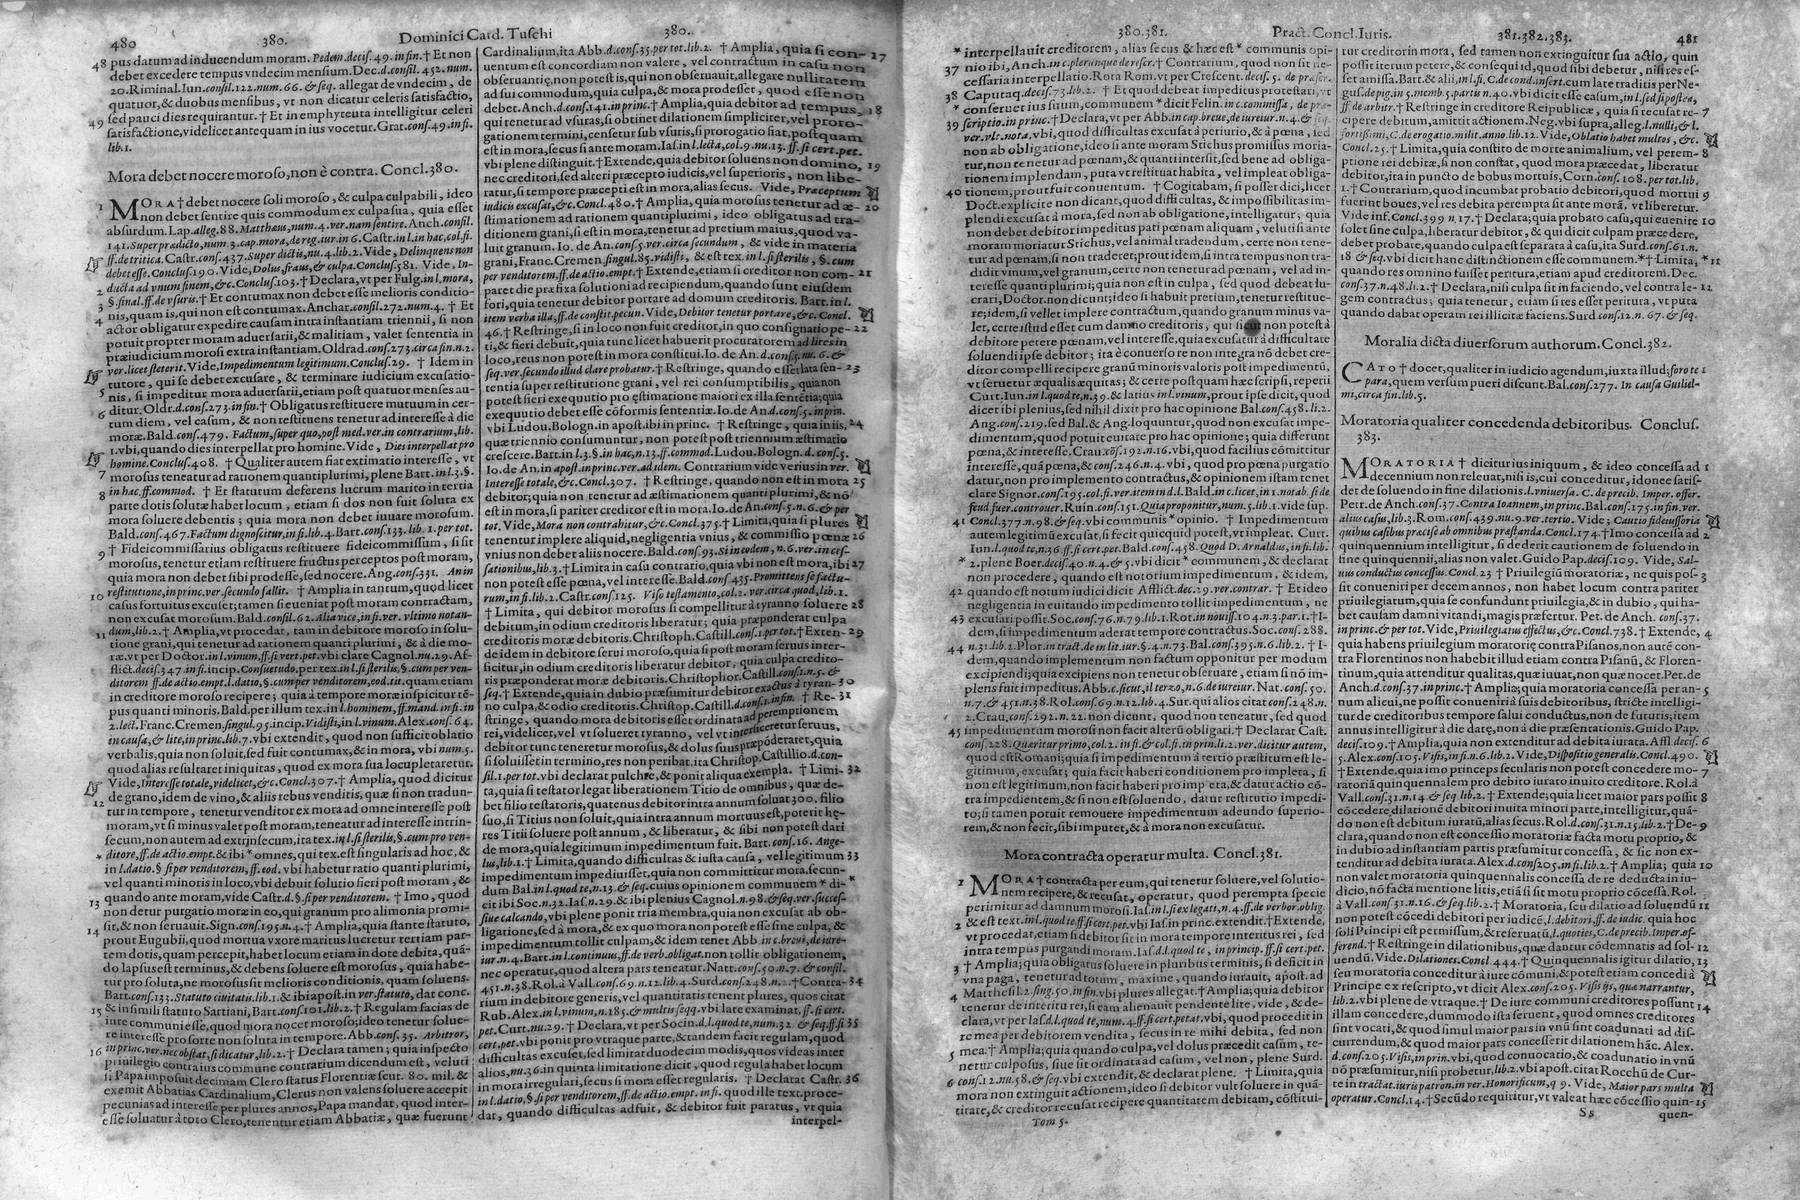 480 380. Dominici Card. Tuschi 380.
48 pus datum ad inducendum moram. Pedem.decis.49.in fin.† Et non
debet excedere tempus vndecim mensium. Dec.d.consil.452.num.
20.Riminal.Iun.consil.122.num.66.& seq. allegat de vndecim, de
quatuor,& duobus mensibus, vt non dicatur celeris satisfactio,
sed pauci dies requirantur. † Et in emphyteuta intelligitur celeri
49 satisfactione,videlicet antequam in ius vocetur.Grat.cons.49.in fi.
lib.1.
Mora debet nocere moroso,non è contra. Concl.380.
1 MORA † debet nocere soli moroso, & culpa culpabili, ideo
non debet sentire quis commodum ex culpa sua, quia esset
absurdum. Lap.alleg.88. Matthæus,num.4.ver.nam sentire.Anch.consil.
141.Super prædicto,num.3.cap.mora,de reg.iur in 6. Castr.in l.in hac,col.fi.
ff.de tritica. Castr.cons.437.Super dictis,nu.4.lib.2. Vide, Delinquens non
debet esse. Conclus.190. Vide, Dolus,fraus,& culpa.Conclus.581. Vide, In-
ducta ad vnum finem,&c.Conclus.103.† Declara,vt per Fulg.in l.mora,
2 §.final.ff.de vsuris.† Et contumax non debet esse melioris conditio-
3 nis,quam is,qui non est contumax.Anchar.consil.272.num.4. † Et
4 actor obligatur expedire causam intra instantiam triennii, si non
potuit propter moram aduersarii,& malitiam, valet sententia in
præiudicium morosi extra instantiam. Oldrad.cons.273.circa fin.n.2.
ver.licet steterit. Vide,Impedimentum legitimum.Conclus.29. † Idem in
tutore, qui se debet excusare, & terminare iudicium excusatio-
5 nis, si impeditur mora aduersarii,etiam post quatuor menses au-
ditur. Oldr.d.cons.273.in fin.† Obligatus restituere mutuum in cer-
6 tum diem, vel casum, & non restituens tenetur ad interesse à die
moræ. Bald.cons.479. Factum,super quo,post med.ver.in contrarium,lib.
1.vbi,quando dies interpellat pro homine. Vide, Dies interpellat pro
homine.Conclus.408. † Qualiter autem fiat extimatio interesse, vt
7 morosus teneatur ad rationem quantiplurimi, plene Bart.in l.3.§.
in hac,ff.commod. † Et statutum deferens lucrum marito in tertia
8 parte dotis solutæ habet locum, etiam si dos non fuit soluta ex
mora soluere debentis; quia mora non debet iuuare morosum.
Bald.cons.467.Factum dignoscitur,in fi.lib.4.Bart.cons.133. lib. 1.per tot.
9 † Fideicommissarius obligatus restituere fideicommissum, si sit
morosus,tenetur etiam restituere fructus perceptos post moram,
quia mora non debet sibi prodesse,sed nocere. Ang.cons.331. An in
restitutione,in princ.ver.secundo fallit. † Amplia in tantum,quod licet
10 casus fortuitus excuset;tamen si eueniat post moram contractam,
non excusat morosum.Bald.consil.62.Alia vice,in fi.ver.vltimo notan-
dum,lib.2.† Amplia,vt procedat, tam in debitore moroso in solu-
11 tione grani,qui tenetur ad rationem quanti plurimi, & à die mo-
ræ.vt per Doctor.in l.vinum,ff.si cert.pet.vbi clare Cagnol.nu.29. Af-
flict.decis.347.in fi.incip.Consuetudo,per tex.in l.si sterilis,§.cum per ven-
ditorem ff.de actio.empt.l.datio,§.cum per venditorem,eod.tit.quam etiam
in creditore moroso recipere; quia à tempore moræ inspicitur tē-
pus quanti minoris.Bald.per illum tex.in l.hominem,ff.mand.in fi.in
2.lect.Franc.Cremen.singul.95.incip.Vidisti,in l.vinum. Alex.cons.64.
in causa,& lite,in princ.lib.7. vbi extendit, quod non sufficit oblatio
verbalis,quia non soluit,sed fuit contumax,& in mora, vbi num.5.
quod alias resultaret iniquitas, quod ex mora sua locupletaretur.
Vide,Interesse totale,videlicet,&c.Concl.307.† Amplia, quod dicitur
12 de grano,idem de vino,& aliis rebus venditis, quæ si non tradun-
tur in tempore, tenetur venditor ex mora ad omne interesse post
moram,vt si minus valet post moram,teneatur ad interesse intrin-
secum,non autem ad extrinsecum,ita tex.in l.si sterilis,§.cum pro ven-
* ditore,ff.de actio.empt.& ibi * omnes,qui tex.est singularis ad hoc, &
in l.datio § si per venditorem,ff.eod. vbi habetur ratio quanti plurimi,
vel quanti minoris in loco,vbi debuit solutio fieri post moram , &
quando ante moram,vide Castr.d.§.si per venditorem. † Imo, quod
13 non detur purgatio moræ in eo,qui granum pro alimonia promi-
sit,& non seruauit.Sign.cons.195.n.4.† Amplia,quia stante statuto,
14 prout Eugubii, quod mortua vxore maritus lucretur tertiam par-
tem dotis,quam percepit,habet locum etiam in dote debita,quā-
do lapsus est terminus,& debens soluere est morosus , quia habe-
tur pro soluta,ne morosus sit melioris conditionis, quam soluens.
Bart.cons.133.Statuto ciuitatis.lib.1.& ibi apost.in ver.statuto, dat conc.
& in simili statuto Sartiani, Bart.cons.101.lib.2.† Regulam facias de
15 iure communi esse,quod mora nocet moroso;ideo tenetur solue-
re interesse pro sorte non soluta in tempore. Abb.cons.35. Arbitror,
in princ.ver.nec obstat,si dicatur,lib.2.† Declara tamen; quia inspecto
16 priuilegio contra ius commune contrarium dicendum est, veluti
si Papa imposuit decimam Clero status Florentiæ scut. 80. mil. &
exemit Abbatias Cardinalium,Clerus non valens soluere accepit
pecunias ad interesse per plures annos,Papa mandat, quod inter-
esse soluatur à toto Clero,tenentur etiam Abbatiæ, quæ fuerunt
Cardinalium,ita Abb.d.cons.35.per tot.lib.2. † Amplia, quia si con- 17
uentum est concordiam non valere, vel contractum in casu non
obseruantię,non potest is,qui non obseruauit,allegare nullitatem
ad sui commodum,quia culpa,& mora prodesset, quod esse non
debet. Anch.d.cons.141.in princ.† Amplia,quia debitor ad tempus, 18
qui tenetur ad vsuras,si obtinet dilationem simpliciter,vel proro-
gationem termini,censetur sub vsuris,si prorogatio fiat,postquam
est in mora,secus si ante moram.Ias.in l.lecta,col.9.nu.13.ff.si cert.pet.
vbi plene distinguit.†Extende,quia debitor soluens non domino, 19
nec creditori,sed alteri præcepto iudicis,vel superioris , non libe-
ratur,si tempore præcepti est in mora,alias secus. Vide, Præceptum
iudicis excusat,&c.Concl.480.† Amplia,quia morosus tenetur ad æ- 20
stimationem ad rationem quantiplurimi , ideo obligatus ad tra-
ditionem grani,si est in mora,tenetur ad pretium maius,quod va-
luit granum. Io. de An.cons.5.ver.circa secundum , & vide in materia
grani,Franc.Cremen.singul.85.vidisti, & est tex.in l.si sterilis , §.cum
per venditorem,ff.de actio.empt.† Extende,etiam si creditor non com- 21
paret die præfixa solutioni ad recipiendum,quando sunt eiusdem
fori,quia tenetur debitor portare ad domum creditoris. Bart.in l.
item verba illa,ff.de constit.pecun.Vide,Debitor tenetur portare,&c. Concl.
46.†Restringe,si in loco non fuit creditor,in quo consignatio pe- 22
ti,& fieri debuit,quia tunc licet habuerit procuratorem ad lites in
loco,reus non potest in mora constitui.Io.de An.d.cons.5.nu.6.&
seq.ver.secundo illud clare probatur.† Restringe,quando esset lata sen- 23
tentia super restitutione grani, vel rei consumptibilis, quia non
potest fieri exequutio pro ęstimatione maiori ex illa sententia;quia
exequutio debet esse cōformis sententiæ.Io.de An.d.cons.5.in prin.
vbi Ludou.Bologn.in apost.ibi in princ. † Restringe, quia in iis, 24
quæ triennio consumuntur, non potest post triennium æstimatio
crescere.Bart.in l.3.§.in hac,n.13.ff.commod.Ludou.Bologn.d.cons.5.
Io.de An.in apost.in princ.ver.ad idem. Contrarium vide verius in ver.
Interesse totale,&c.Concl.307. † Restringe, quando non est in mora 25
debitor;quia non tenetur ad æstimationem quanti plurimi, & nō
est in mora,si pariter creditor est in mora.Io.de An.cons.5.n.6.& per
tot.Vide,Mora non contrahitur,&c.Concl.375.† Limita,quia si plures
tenentur implere aliquid,negligentia vnius, & commissio pœnæ 26
vnius non debet aliis nocere.Bald.cons.93.Si in eodem , n.6.ver.in ces-
sationibus,lib.3.†Limita in casu contrario,quia vbi non est mora,ibi 27
non potest esse pœna,vel interesse.Bald.cons 435.Promittens se factu-
rum,in fi.lib.2.Castr.cons.125. Viso testamento,col.2.ver.circa quod,lib.1.
† Limita, qui debitor morosus si compellitur à tyranno soluere 28
debitum,in odium creditoris liberatur; quia præponderat culpa
creditoris moræ debitoris. Christoph.Castill.cons.1.per tot.† Exten- 29
de idem in debitore serui morosi,quia si post moram seruus inter-
ficitur,in odium creditoris liberatur debitor , quia culpa credito-
ris præponderat moræ debitoris. Christophor.Castill.cons.1.n.5.&
seq.† Extende,quia in dubio præsumitur debitor exactus à tyran- 30
no culpa,& odio creditoris. Christop. Castill.d.cons.1.in fin. † Re- 31
stringe, quando mora debitoris esset ordinata ad peremptionem
rei,videlicet,vel vt solueret tyranno, vel vt interficeretur seruus,
debitor tunc teneretur morosus,& dolus suus præpōderatet,quia
si soluisset in termino,res non peribat.ita Christop.Castillio.d.con-
sil.1.per tot.vbi declarat pulchre,& ponit aliqua exempla. † Limi- 32
ta,quia si testator legat liberationem Titio de omnibus , quæ de-
bet filio testatoris,quatenus debitor intra annum soluat 300. filio
suo,si Titius non soluit,quia intra annum mortuus est,poterit hę-
res Titii soluere post annum , & liberatur, & sibi non potest dari
de mora,quia legitimum impedimentum fuit. Bart.cons.16. Ange-
lus,lib.1.† Limita,quando difficultas & iusta causa, vel legitimum 33
impedimentum impediuisset,quia non committitur mora.secun-
dum Bal.in l.quod te,n.13.& seq.cuius opinionem communem * di- *
cit ibi Soc.n.32.Ias.n.29.& ibi plenius Cagnol.n.98.&seq.ver.succes-
siue calcando,vbi plene ponit tria membra,quia non excusat ab ob-
ligatione,sed à mora, & ex quo mora non potest esse sine culpa, &
impedimentum tollit culpam, & idem tenet Abb.in c.breui,de iure-
iur.n.4.Bart.in l.continuus,ff.de verb.obligat.non tollit obligationem,
nec operatur,quod altera pars teneatur. Natt.cons.50.n.7. & consil.
451.n.38.Rol.à Vall.cons.69.n.12.lib.4.Surd.cons.248.n.2.†Contra- 34
rium in debitore generis,vel quantitatis tenent plures,quos citat
Rub.Alex.in l.vinum,n.185.& multis seqq.vbi late examinat.ff.si cert.
pet.Curt.nu.29.† Declara,vt per Socin.d.l.quod te,num.32.& seq.ff.si 35
cert.pet.vbi ponit pro vtraque parte,& tandem facit regulam,quod
difficultas excuset,sed limitat duodecim modis,quos videas inter
alios,nu.36.in quinta limitatione dicit, quod regula habet locum
in mora irregulari,secus si mora esset regularis. † Declarat Castr. 36
in l.datio,§ si per venditorem,ff.de actio.empt. in fi.quod ille text.proce-
dat, quando difficultas adfuit, & debitor fuit paratus, vt quia
interpel-
380.381. Pract. Concl.Iuris. 381.382.383. 481
* interpellauit creditorem, alias secus & hæc est * communis opi-
37 nio ibi,Anch.in c.plerunque de rescr.† Contrarium, quod non sit ne-
cessaria interpellatio.Rota Rom.vt per Crescent.decis.5.
38 Caputaq.decis.73.lib.2. † Et quod debeat impeditus protestari,vt
* conseruet ius suum,communem * dicit Felin.in c.commissa,
39 scriptio.in princ.†Declara,vt per Abb.in cap.breue,de iureiur.n.4.&
ver.vlt.nota,vbi,quod difficultas excusat à periurio,& à pœna , sed
non ab obligatione,ideo si ante moram Stichus promissus moria-
tur,non tenetur ad pœnam,& quanti intersit,sed bene ad obliga-
tionem implendam , puta vt restituat habita , vel impleat obliga-
40 tionem,prout fuit conuentum. † Cogitabam,si posset dici,licet
Doct.explicite non dicant,quod difficultas,& impossibilitas im-
plendi excusat à mora,sed non ab obligatione,intelligatur; quia
non debet debitor impeditus pati pœnam aliquam , veluti si ante
moram moriatur Stichus,vel animal tradendum, certe non tene-
tur ad pœnam,si non traderet;prout idem,si intra tempus non tra-
didit vinum,vel granum,certe non tenetur ad pœnam, vel ad in-
teresse quanti plurimi;quia non est in culpa , sed quod debeat lu-
crari,Doctor.non dicunt;ideo si habuit pretium,tenetur restitue-
re;idem,si vellet implere contractum,quando granum minus va-
let,certe istud esset cum damno creditoris , qui sicut non potest à
debitore petere pœnam,vel interesse,quia excusatur à difficultate
soluendi ipse debitor; ita è conuerso re non integra nō debet cre-
ditor compelli recipere granū minoris valoris post impedimentū,
vt seruetur æqualis æquitas; & certe postquam hæc scripsi,reperii
Curt.Iun.in l.quod te,n.39.& latius in l.vinum,prout ipse dicit, quod
dicet ibi plenius,sed nihil dixit pro hac opinione Bal.cons.458.li.2.
Ang.cons.219.sed Bal.& Ang.loquuntur,quod non excuset impe-
dimentum,quod potuit euitare pro hac opinione; quia differunt
pœna,& interesse.Crau.cōs.192.n.16.vbi,quod facilius cōmittitur
interesse,quā pœna,& cons.246.n.4.vbi, quod pro pœna purgatio
datur,non pro implemento contractus,& opinionem istam tenet
clare Signor.cons.195.col.fi.ver.item in d.l.Bald.in c.licet,in 1.notab.si de
feud fuer.controuer.Ruin.cons.151.Quia proponitur,num.5.lib.1.vide sup.
41 Concl.377.n.98.& seq.vbi communis * opinio. † Impedimentum
autem legitimū excusat,si fecit quicquid potest,vt impleat. Curt.
Iun.l.quod te,n.36.ff.si cert.pet.Bald.cons.458.Quod D. Arnaldus,in fi.lib.
* 2.plene Boer.decis.40.n.4.& 5.vbi dicit * communem, & declarat
non procedere, quando est notorium impedimentum, & idem,
quando est notum iudici dicit Afflict.dec.29.ver.contrar. † Et ideo
42 negligentia in euitando impedimento tollit impedimentum, ne
43 excusari possit.Soc.cons.76.n.79.lib.1.Rot.in nouiss.104.n.3.par.1.† I-
dem,si impedimentum aderat tempore contractus.Soc.cons.288.
44 n.31.lib.2.Plot.in tract.de in lit.iur.§.4.n.73.Bal.cons.395.n.6.lib.2. † I-
dem,quando implementum non factum opponitur per modum
excipiendi;quia excipiens non tenetur obseruare , etiam si nō im-
plens fuit impeditus.Abb.c.sicut,il terzo,n.6.de iureiur. Nat.cons.50.
n.7.& 451.n.38.Rol.cons.69.n.12.lib.4.Sur.qui alios citat cons.248.n.
2.Crau.cons.292.n.22.non dicunt, quod non teneatur, sed quod
45 impedimentum morosi non facit alterū obligari.† Declarat Cast.
cons.228.Quæritur primo,col.2.in fi.& col.fi.in prin.li.2.ver.dicitur autem,
quod est Romani;quia si impedimentum à tertio præstitum est le-
gitimum, excusat; quia facit haberi conditionem pro impleta , si
non est legitimum,non facit haberi pro impleta,& datur actio cō-
tra impedientem,& si non est soluendo, datur restitutio impedi-
to;si tamen potuit remouere impedimentum adeundo superio-
rem,& non fecit,sibi imputet,& à mora non excusatur.
Mora contracta operatur multa. Concl.381.
1 MORA † contracta per eum,qui tenetur soluere,vel solutio-
nem recipere,& recusat, operatur, quod perempta specie
perimitur ad damnum morosi.Ias.in l.si ex legati,n.4.ff.de verbor.oblig.
2 & est text.in l.quod te,ff.si cert.pet.vbi Ias.in princ.extendit.†Extende,
vt procedat,etiam si debitor sit in mora tempore interitus rei , sed
intra tempus purgandi moram. Ias.d.l.quod te , in princip.ff.si cert.pet.
3 † Amplia;quia obligatus soluere in pluribus terminis,si deficit in
vna paga, tenetur ad totum, maxime,quando iurauit, apost. ad
Matthesil.2.sing.50.in fin.vbi plures allegat.† Amplia;quia debitor
4 tenetur de interitu rei,si eam alienauit pendente lite, vide, & de-
clara,vt per Ias.l.quod te,num.4.ff.si cert.petat.vbi,quod procedit in
re mea per debitorem vendita, secus in re mihi debita, sed non
mea.† Amplia;quia quando culpa,vel dolus præcedit casum, te-
5 netur culposus, siue sit ordinata ad casum, vel non, plene Surd.
6 cons.12.nu.58.& seq.vbi extendit,& declarat plene. † Limita,quia
mora non extinguit actionem,ideo si debitor vult soluere in quā-
titate,& creditor recusat recipere quantitatem debitam, cōstitui-
Tom 5.
tur creditor in mora, sed tamen non extinguitur sua actio, quin
possit iterum petere,& consequi id,quod sibi debetur, nisi res es-
set amissa.Bart.& alii,in l.si,C.de cond.insert.cum late traditis per Ne-
gus.de pig.in 5.memb.5.partis n.40.vbi dicit esse casum,in l.sed si postea,
ff de arbitr.† Restringe in creditore Reipublicæ, quia si recusat re- 7
cipere debitum,amittit actionem.Neg.vbi supra,alleg.l.nulli,& l.
fortissimi,C.de erogatio.milit.anno.lib.12.Vide,Oblatio habet multos , &c.
Concl.25.† Limita, quia constito de morte animalium, vel perem- 8
ptione rei debitæ,si non constat, quod mora præcedat, liberatur
debitor,ita in puncto de bobus mortuis,Corn.cons.108.per tot.lib.
1.† Contrarium,quod incumbat probatio debitori,quod mortui 9
fuerint boues,vel res debita perempta sit ante morā, vt liberetur.
Vide inf.Concl.399 n.17.† Declara;quia probato casu,qui euenire 10
solet sine culpa,liberatur debitor, & qui dicit culpam præcedere,
debet probare,quando culpa est separata à casu,ita Surd.cons.61.n.
18 & seq.vbi dicit hanc distinctionem esse communem.*† Limita, * 11
quando res omnino fuisset peritura,etiam apud creditorem.Dec.
cons.37.n.48.li.2.† Declara,nisi culpa sit in faciendo,vel contra le- 12
gem contractus; quia tenetur , etiam si res esset peritura , vt puta
quando dabat operam rei illicitæ faciens.Surd.cons.12.n. 67. & seq.
Moralia dicta diuersorum authorum. Concl.382.
CATO † docet,qualiter in iudicio agendum,iuxta illud;foro te 1
para,quem versum pueri discunt.Bal.cons.277. In causa Guliel-
mi,circa fin.lib.5.
Moratoria qualiter concedenda debitoribus. Conclus.
383.
MORATORIA † dicitur ius iniquum , & ideo concessa ad 1
decennium non releuat,nisi is,cui conceditur,idonee satis-
det de soluendo in fine dilationis.l.vniuersa. C.de precib. Imper. offer.
Petr.de Anch.cons.37.Contra Ioannem,in princ.Bal.cons.175.in fin.ver.
alius casus,lib.3.Rom.cons.439.nu.9.ver.tertio. Vide; Cautio fideiussoria
quibus casibus præcise ab omnibus præstanda.Concl.174.†Imo concessa ad 2
quinquennium intelligitur, si dederit cautionem de soluendo in
fine quinquennii,alias non valet.Guido Pap.decis.109. Vide, Sal-
uus conductus concessus.Concl.23 † Priuilegiū moratoriæ, ne quis pos- 3
sit conueniri per decem annos, non habet locum contra pariter
priuilegiatum,quia se confundunt priuilegia,& in dubio , qui ha-
bet causam damni vitandi,magis præfertur. Pet. de Anch. cons.37.
in princ.& per tot.Vide,Priuilegiatus effectus,&c.Concl.738.† Extende, 4
quia habens priuilegium moratorię contra Pisanos,non autē con-
tra Florentinos non habebit illud etiam contra Pisanū, & Floren-
tinum,quia attenditur qualitas,quæ iuuat, non quæ nocet.Per.de
Anch.d.cons.37.in princ.† Amplia;quia moratoria concessa per an- 5
num alicui,ne possit conueniri à suis debitoribus, stricte intelligi-
tur de creditoribus tempore salui conductus,non de futuris;item
annus intelligitur à die datę,non à die præsentationis.Guido Pap.
decis.109.† Amplia,quia non extenditur ad debita iurata.Affl decis. 6
5.Alex.cons.105.Visis,in fi.n.6.lib.2.Vide,Dispositio generalis.Concl.490.
†Extende.quia imo princeps secularis non potest concedere mo- 7
ratoriā quinquennalem pro debito iurato inuito creditore. Rol.à
Vall.cons.31.n.14.& seq lib.2.† Extende;quia licet maior pars possit 8
cōcedere,dilationē debitoris inuita minori parte,intelligitur,quā-
do non est debitum iuratū,alias secus.Rol.d.cons.31.n.15.lib.2.†De- 9
clara,quando non est concessio moratoriæ facta motu proprio, &
in dubio ad instantiam partis præsumitur concessa, & sic non ex-
tenditur ad debita iurata.Alex.d.cons205.in fi.lib.2.† Amplia; quia 10
non valet moratoria quinquennalis concessa de re deducta in iu-
dicio,nō facta mentione litis,etiā si sit motu proprio cōcessa.Rol.
à Vall.cons.31.n.16.&seq.lib.2.† Moratoria,seu dilatio ad soluendū 11
non potest cōcedi debitori per iudicē,l.debitori,ff.de iudic. quia hoc
soli Principi est permissum,&reseruatū,l.quoties,C.de precib.Imper.of-
ferend.† Restringe in dilationibus,quæ dantur cōdemnatis ad sol- 12
uendū. Vide.Dilationes.Concl.444.† Quinquennalis igitur dilatio, 13
seu moratoria conceditur à iure cōmuni,&potest etiam concedi à
Principe ex rescripto,vt dicit Alex.cons.205.Visis ijs,quæ narrantur,
lib.2.vbi plene de vtraque.† De iure communi creditores possunt 14
illam concedere,dummodo ista seruent,quod omnes creditores
sint vocati,& quod simul maior pars in vnū sint coadunati ad dis-
currendum,& quod maior pars concesserit dilationem hāc. Alex.
d.cons.205.Visis,in prin.vbi,quod conuocatio,& coadunatio in vnū
nō præsumitur,nisi probetur,lib.2.vbi apost.citat Rocchū de Cur-
te in tractat.iurispatron.in ver.Honorificum,q 9. Vide, Maior pars multa
operatur.Concl.14.†Secūdo requiritur,vt valeat hæc cōcessio quin- 15
Ss quen-